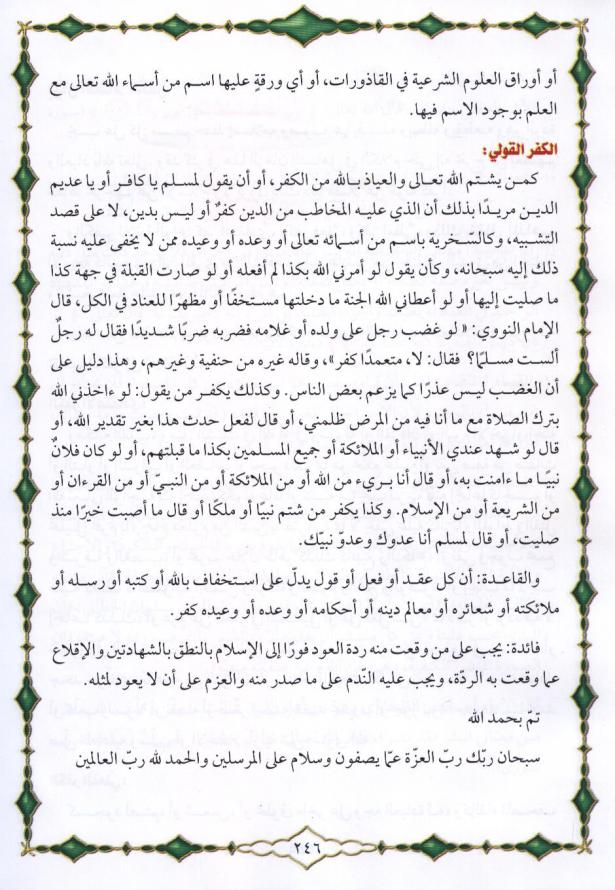 أو أوراق العلوم الشرعية في القاذورات، أو أي ورقةٍ عليها اسم من أسماء الله تعالى مع
العلم بوجود الاسم فيها.
الكفر القولي:
كمن يشتم الله تعالى والعياذ بالله من الكفر، أو أن يقول لمسلم يا كافر أو يا عديم
الدين مريدًا بذلك أن الذي عليه المخاطب من الدين كفرٌ أو ليس بدين، لا على قصد
التشبيه، وكالسّخرية باسم من أسمائه تعالى أو وعده أو وعيده ممن لا يخفى عليه نسبة
ذلك إليه سبحانه، وكأن يقول لو أمرني الله بكذا لم أفعله أو لو صارت القبلة في جهة كذا
ما صليت إليها أو لو أعطاني الله الجنة ما دخلتها مستخفًا أو مظهرًا للعناد في الكل، قال
الإمام النووي: «لو غضب رجل على ولده أو غلامه فضربه ضربًا شديدًا فقال له رجلٌ
ألست مسلمًا؟ فقال: لا، متعمدًا كفر»، وقاله غيره من حنفية وغيرهم، وهذا دليل على
أن الغضب ليس عذرًا كما يزعم بعض الناس. وكذلك يكفر من يقول: لو ءاخذني الله
بترك الصلاة مع ما أنا فيه من المرض ظلمني، أو قال لفعل حدث هذا بغير تقدير الله، أو
قال لو شهد عندي الأنبياء أو الملائكة أو جميع المسلمين بكذا ما قبلتهم، أو لو كان فلانٌ
نبيًا ما ءامنت به، أو قال أنا بريء من الله أو من الملائكة أو من النبيّ أو من القرءان أو
من الشريعة أو من الإسلام. وكذا يكفر من شتم نبيًا أو ملكًا أو قال ما أصبت خيرًا منذ
صليت، أو قال لمسلم أنا عدوك وعدوّ نبيّك.
والقاعدة: أن كل عقد أو فعل أو قول يدلّ على استخفاف بالله أو كتبه أو رسله أو
ملائكته أو شعائره أو معالم دينه أو أحكامه أو وعده أو وعيده كفر.
فائدة: يجب على من وقعت منه ردة العود فورًا إلى الإسلام بالنطق بالشهادتين والإقلاع
عما وقعت به الردّة، ويجب عليه النّدم على ما صدر منه والعزم على أن لا يعود لمثله.
تمّ بحمد الله
سبحان ربّك ربّ العزّة عمّا يصفون وسلام على المرسلين والحمد لله ربّ العالمين
٢٤٦